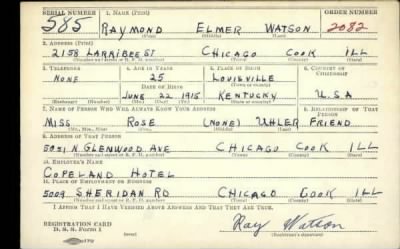 SERIAL NUMBER 1. NAME (Print) ORDER NUMBER
585 RAYMOND ELMER WATSON 2082
(First) (Middle) (Last)
2. ADDRESS (Print)
2158 LARRIBEE ST CHICAGO COOK ILL
(Number and street or R. F. D. number) (Town) (County) (State)
3. TELEPHONE 4. AGE IN YEARS 5. PLACE OF BIRTH 6. COUNTRY OF CITIZENSHIP
NONE 25 LOUISVILLE
DATE OF BIRTH (Town or county)
JUNE 22 1915 KENTUCKY U.S.A
(Exchange) (Number) (Mo.) (Day) (Yr.) (State or country)
7. NAME OF PERSON WHO WILL ALWAYS KNOW YOUR ADDRESS 8. RELATIONSHIP OF THAT PERSON
MISS ROSE (NONE) UHLER FRIEND
(Mr., Mrs., Miss) (First) (Middle) (Last)
9. ADDRESS OF THAT PERSON
5051 N GLENWOOD AVE CHICAGO COOK ILL
(Number and street or R. F. D. number) (Town) (County) (State)
10. EMPLOYER'S NAME
COPELAND HOTEL
11. PLACE OF EMPLOYMENT OR BUSINESS
5009 SHERIDAN RD CHICAGO COOK ILL
(Number and street or R. F. D. number) (Town) (County) (State)
I AFFIRM THAT I HAVE VERIFIED ABOVE ANSWERS AND THAT THEY ARE TRUE.
REGISTRATION CARD
D. S. S. Form 1 Ray Watson
(Registrant's signature)